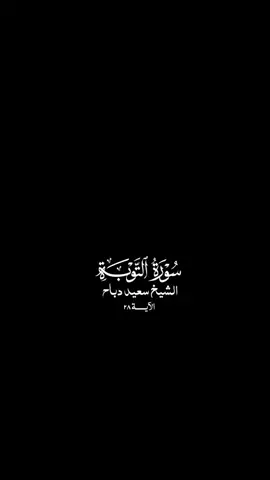 سُورَةُ التَّوْبَةِ
الشيخ سعيد دباح
الآية ٢٨